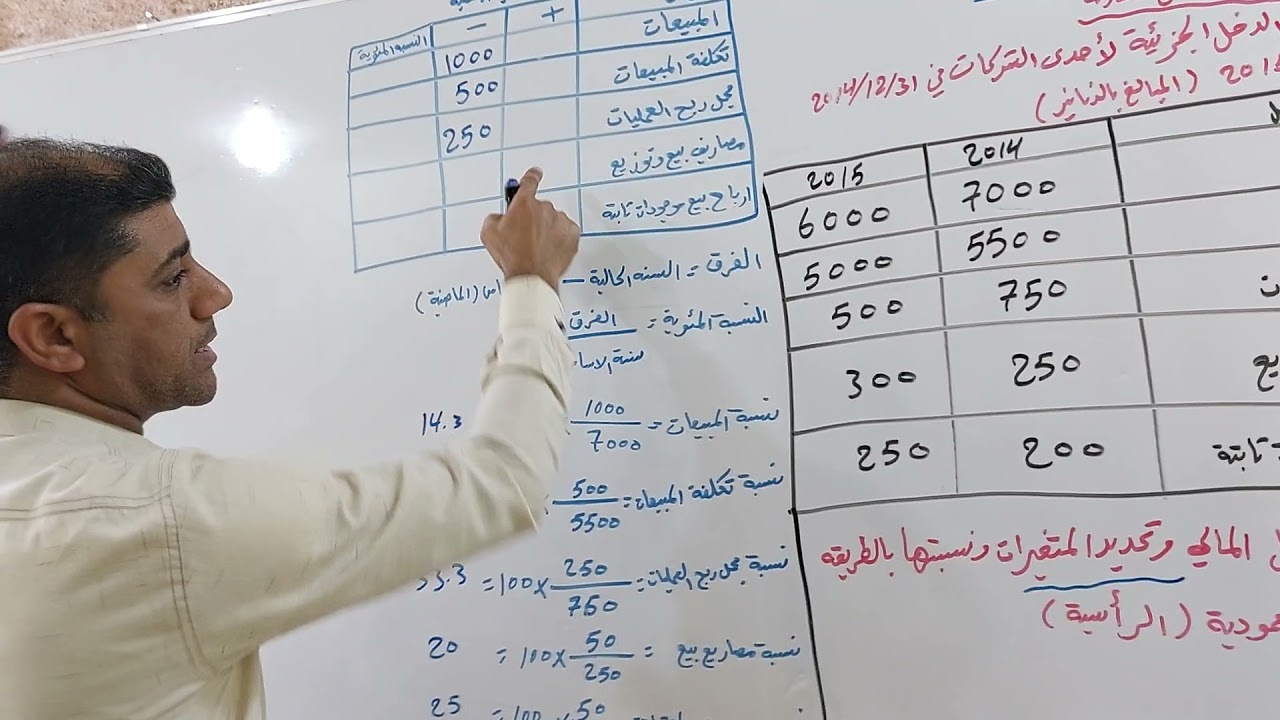 الدخل الجزئية لأحدى الشركات في 2014/12/31
2015 (المبالغ بالدنانير)
2014 2015
7000 6000
5500 5000
ت 750 500
يع 250 300
ثابتة 200 250
المالي وتحديد المتغيرات ونسبتها بالطريقه
(الرأسية)
+ - النسبة المئوية
المبيعات 1000
تكلفة المبيعات 500
مجمل ربح العمليات 250
مصاريف بيع وتوزيع
ارباح بيع موجودات ثابتة
الفرق = السنه الحالية - اس (الماضية)
النسبة المئوية = الفرق
سنة الاساس
نسبة المبيعات = 1000 14.3
7000
نسبة تكلفة المبيعات = 500
5500
نسبة مجمل ربح العمليات = 250 × 100 = 33.3
750
نسبة مصاريع بيع = 50 × 100 = 20
250
50 × 100 = 25